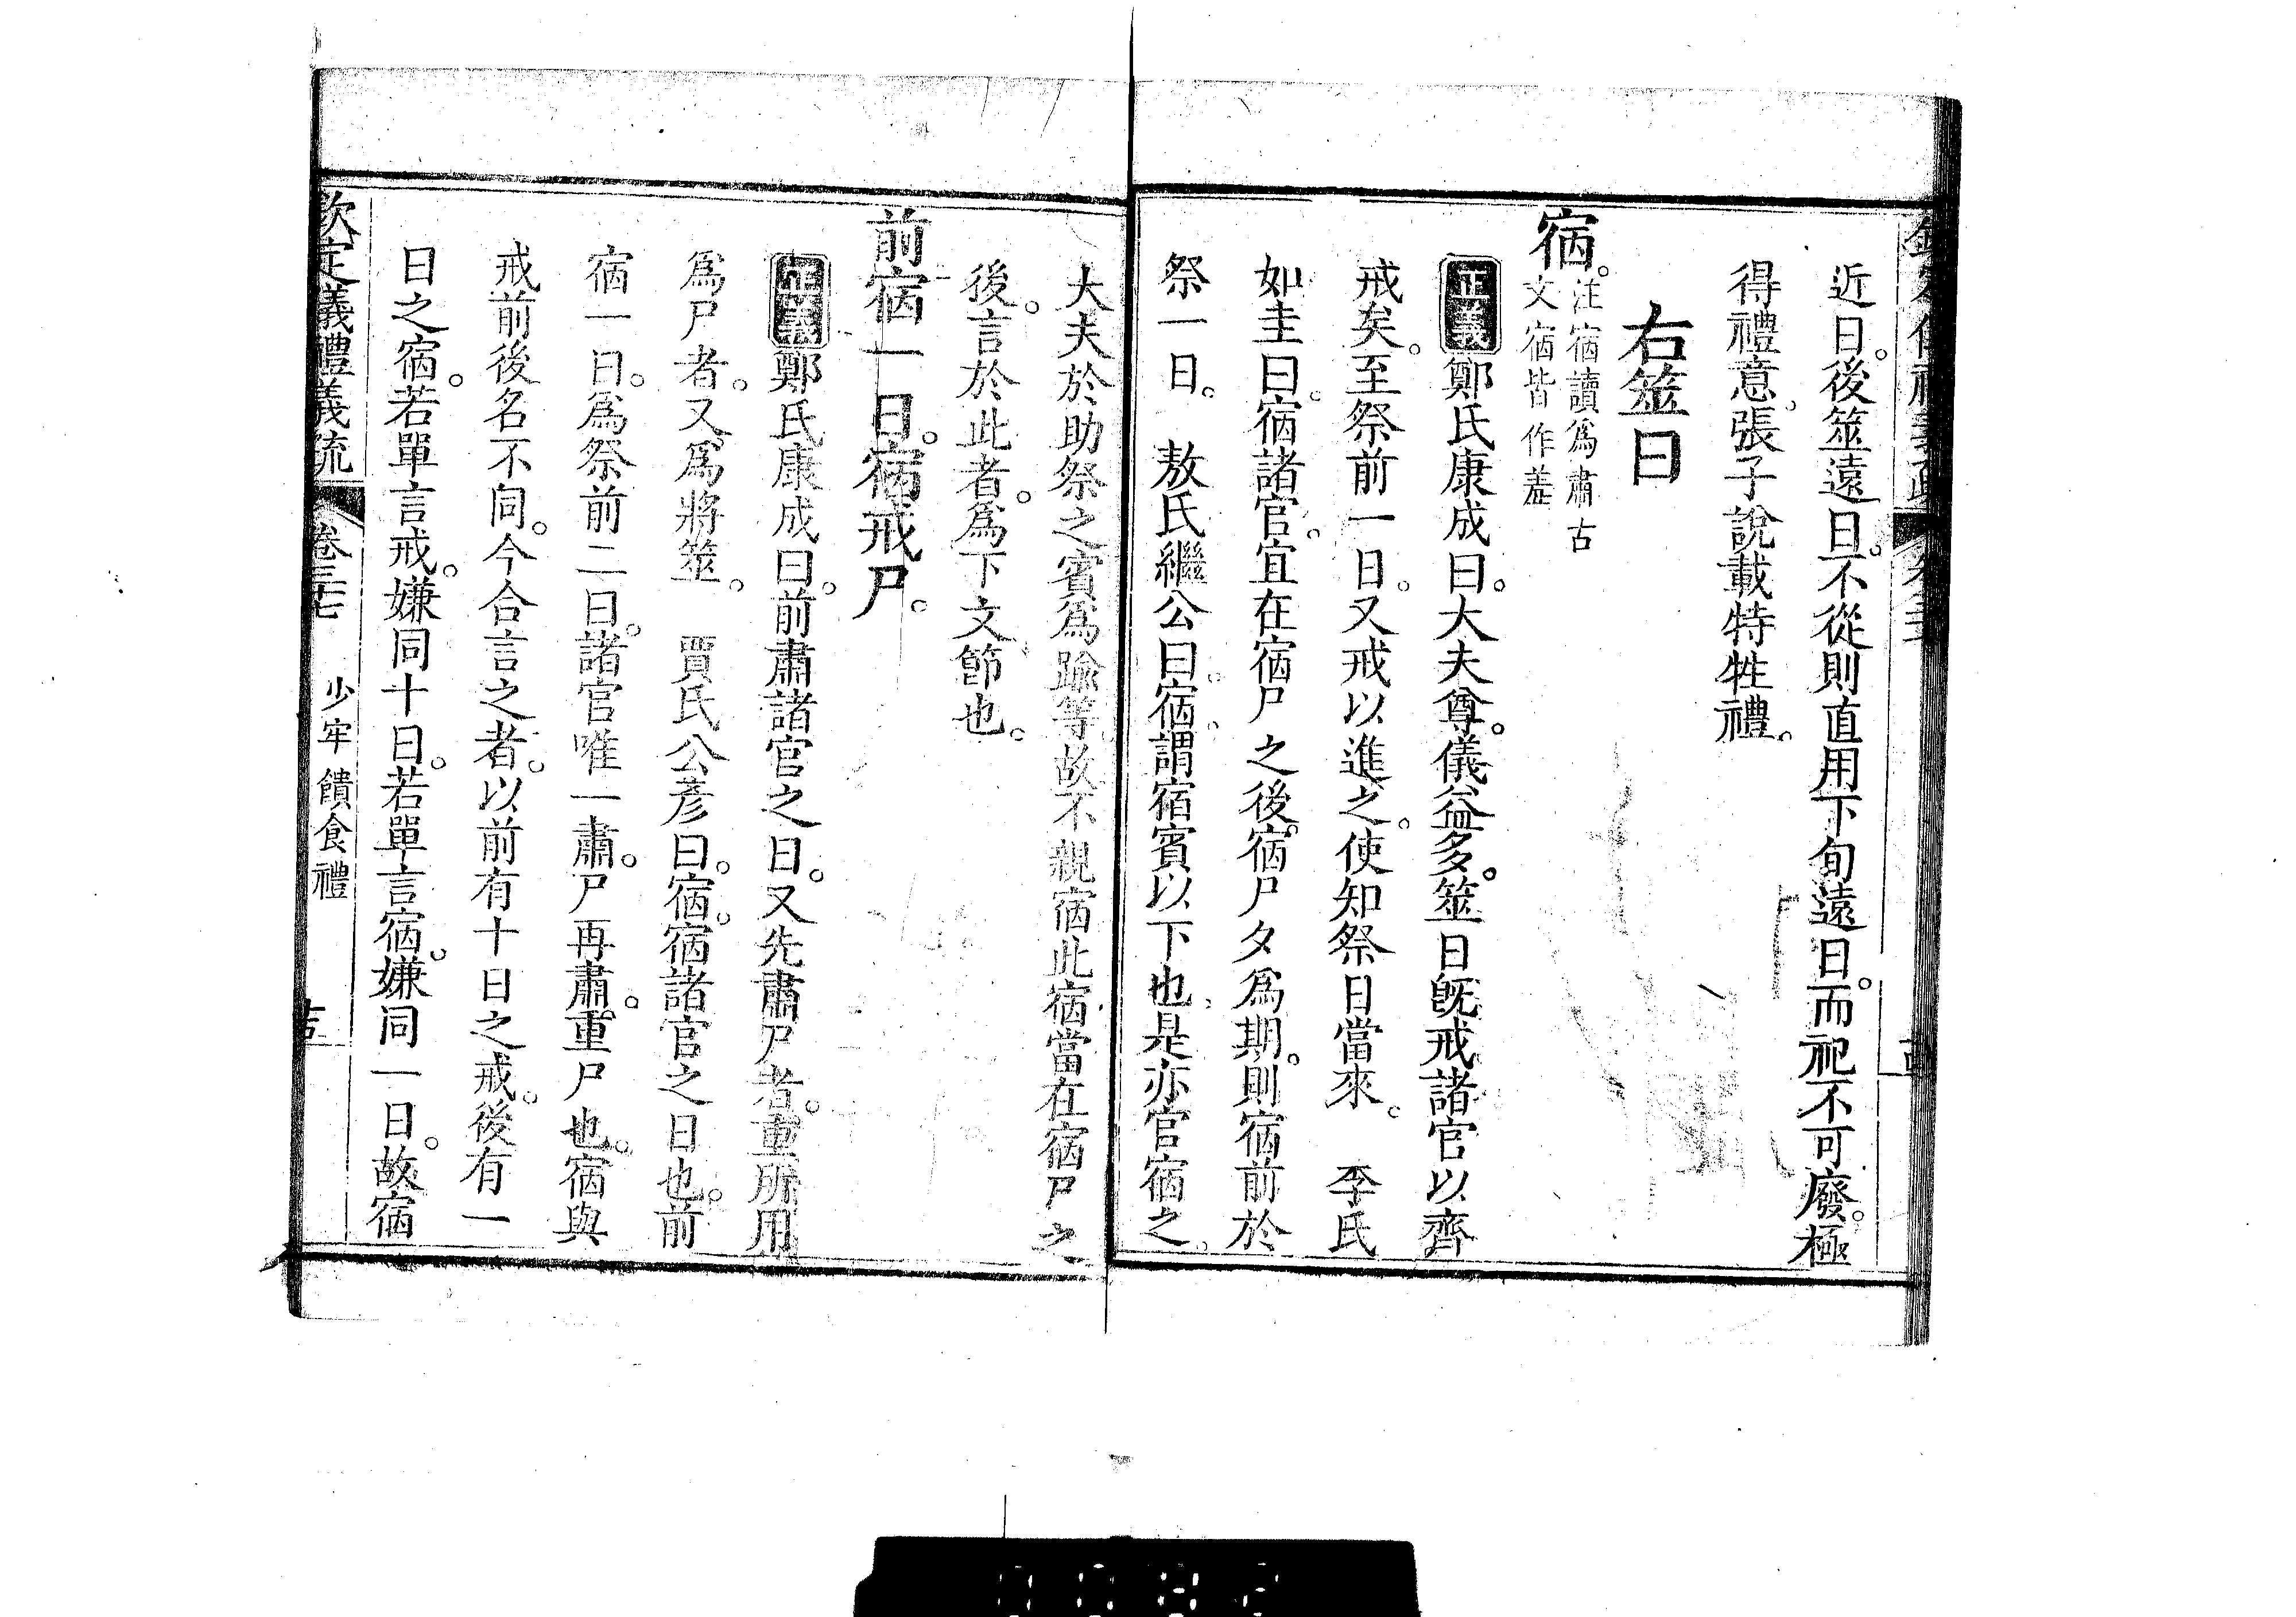 近日。後筮遠日。不從則直用下旬遠日。而祀不可廢。極
得禮意。張子說載特牲禮。
右筮日
宿。注宿讀爲肅古
文宿皆作羞
正義鄭氏康成曰。大夫尊。儀益多。筮日既戒諸官以齊
戒矣。至祭前一日。又戒以進之。使知祭日當來。 李氏
如圭曰。宿諸官。宜在宿尸之後。宿尸夕爲期。則宿前於
祭一日。 敖氏繼公曰。宿。謂宿賓以下也。是亦官宿之。
大夫於助祭之賓爲踰等故不親宿此宿當在宿尸之
後。言於此者。爲下文節也。
前宿一日。宿戒尸。
正義鄭氏康成曰。前肅諸官之日。又先肅尸者。重所用
爲尸者。又爲將筮。 賈氏公彥曰。宿。宿諸官之日也。前
宿一日。爲祭前二日。諸官唯一肅。尸再肅。重尸也。宿與
戒前後名不同。今合言之者。以前有十日之戒。後有一
日之宿。若單言戒。嫌同十日。若單言宿。嫌同一日。故宿
欽定儀禮義疏 卷三十七 少牢饋食禮